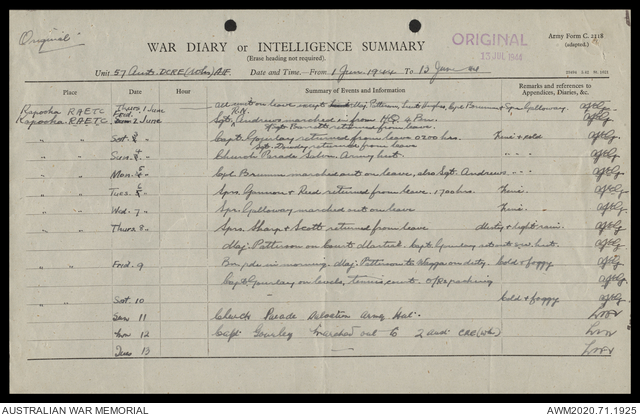 Original
ORIGINAL
13 JUL 1944
Army Form C. 2118
(adapted.)
WAR DIARY or INTELLIGENCE SUMMARY
(Erase heading not required).
Unit 57 Aust. DCRE (Wks) AIF. Date and Time.—From 1 June 1944 To 13 June 44
Place Date Hour Summary of Events and Information Remarks and references to Appendices, Diaries, &c.
Kapooka RAETC Thurs 1 June on leave except Maj. Patterson, Lieut Hughes, Cpl Brennan & Spr Galloway.
Kapooka RAETC. Fri 2 June Sgt. Andrews marched in from H.Q.
Barrett returned from leave.
" " Sat. 3 Capt. Gourlay returned from leave 0200 hrs. Fine & cold
Sgt. returned from leave
" " Sun. 4 Church Parade Salvn. Army hut " " "
" " Mon. 5 Cpl Brennan marched out on leave, also Sgt. Andrews " " "
" " Tues. 6 Sprs. Gunson & Reed returned from leave. 1700 hrs. Fine.
" " Wed. 7 Spr. Galloway marched out on leave Fine.
" " Thurs 8 Sprs. Sharp & Scott returned from leave & light rain.
Maj. Patterson on Court Martial. Capt. Gourlay
" " Frid. 9 in morning. Maj. Patterson to Wagga on duty. Cold & foggy
Capt. Gourlay on levels, tennis court. O/Rs packing
Sat. 10 — Cold & foggy
" " Sun 11 Church Parade Salvation Army Hut.
" " Mon 12 Capt Gourlay marched out to 2 Aust CRE (Wks)
Tues 13 —
AUSTRALIAN WAR MEMORIAL
AWM2020.71.1925